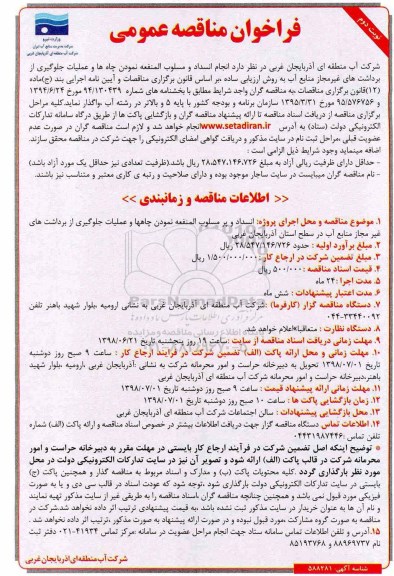 نوبت دوم
فراخوان مناقصه عمومی
وزارت نیرو
شرکت مدیریت منابع آب ایران
شرکت آب منطقه ای آذربایجان غربی
شرکت آب منطقه ای آذربایجان غربی در نظر دارد انجام انسداد و مسلوب المنفعه نمودن چاه ها و عملیات جلوگیری از
برداشت های غیرمجاز منابع آب به روش ارزیابی ساده ،بر اساس قانون برگزاری مناقصات و آیین نامه اجرایی بند (ج)ماده
(۱۲)قانون برگزاری مناقصات ،به مناقصه گران واجد شرایط مطابق با بخشنامه های شماره ۹۴/۱۳۰۴۳۹ مورخ ۱۳۹۴/۶/۲۴
و ۹۵/۵۷۶۷۵۶ مورخ ۱۳۹۵/۳/۳۱ سازمان برنامه و بودجه کشور با پایه ۵ و بالاتر در رشته آب واگذار نماید.کلیه مراحل
برگزاری مناقصه از دریافت اسناد مناقصه تا ارائه پیشنهاد مناقصه گران و بازگشایی پاکت ها از طریق درگاه سامانه تدارکات
الکترونیکی دولت (ستاد) به آدرس www.setadiran.ir انجام خواهد شد و لازم است مناقصه گران در صورت عدم
عضویت قبلی ،مراحل ثبت نام در سایت مذکور و دریافت گواهی امضای الکترونیکی را جهت شرکت در مناقصه محقق سازند.
اضافه مینماید وجود شرایط ذیل الزامی است :
- حداقل دارای ظرفیت ریالی آزاد به مبلغ ۲۸،۵۴۷،۱۴۶،۷۲۶ ریال باشد.(ظرفیت تعدادی نیز حداقل یک مورد آزاد باشد)
- نام مناقصه گران میبایست در سایت ساجار موجود بوده و دارای صلاحیت و رتبه ی کاری معتبر و متناسب نیز باشند.
<< اطلاعات مناقصه و زمانبندی >>
۱. موضوع مناقصه و محل اجرای پروژه: انسداد و پر مسلوب المنفعه نمودن چاهها و عملیات جلوگیری از برداشت های
غیر مجاز منابع آب در سطح استان آذربایجان غربی
۲. مبلغ برآورد اولیه : حدود ۲۸/۵۴۷/۱۴۶/۷۲۶ ریال
۳. مبلغ تضمین شرکت در ارجاع کار: ۱/۵۰۰/۰۰۰/۰۰۰ ریال
۴. قیمت اسناد مناقصه : ۵۰۰/۰۰۰ ریال
۵. مدت اجرا: ۲۴ ماه
۶. مدت اعتبار پیشنهادات : شش ماه
۷. دستگاه مناقصه گزار (کارفرما): شرکت آب منطقه ای آذربایجان غربی به نشانی ارومیه بلوار شهید باهنر تلفن
۰۴۴-۳۳۴۴۰۰۹۲
۸. دستگاه نظارت : متعاقبا"اعلام خواهد شد.
۹. مهلت زمانی دریافت اسناد مناقصه از سایت : ساعت ۱۹ روز پنجشنبه تاریخ ۱۳۹۸/۰۶/۲۱
۱۰. مهلت زمانی و محل ارائه پاکت (الف) تضمین شرکت در فرآیند ارجاع کار : ساعت ۹ صبح روز دوشنبه
تاریخ ۱۳۹۸/۰۷/۰۱ تحویل به دبیرخانه حراست و امور محرمانه شرکت به نشانی :آذربایجان غربی ،ارومیه بلوار شهید
باهنر،دبیرخانه حراست و امور محرمانه شرکت آب منطقه ای آذربایجان غربی
۱۱. مهلت زمانی ارائه پیشنهاد قیمت : ساعت ۹ صبح روز دوشنبه تاریخ ۱۳۹۸/۰۷/۰۱
۱۲. زمان بازگشایی پاکت ها : ساعت ۱۰ صبح روز دوشنبه تاریخ ۱۳۹۸/۰۷/۰۱
۱۳. محل بازگشایی پیشنهادات : سالن اجتماعات شرکت آب منطقه ای آذربایجان غربی
۱۴. اطلاعات تماس دستگاه مناقصه گزار جهت دریافت اطلاعات بیشتر در خصوص اسناد مناقصه و ارائه پاکت (الف) شماره
تلفن تماس :۰۴۴۳۱۹۸۷۴۴۶
* توضیح اینکه اصل تضمین شرکت در فرآیند ارجاع کار بایستی در مهلت مقرر به دبیرخانه حراست و امور
محرمانه شرکت در قالب پاکت (الف) ارائه شود و تصویر آن نیز در سایت تدارکات الکترونیکی دولت در محل
مورد نظر بارگذاری گردد .کلیه محتویات پاکت (ب) و مدارک و اسناد مربوط به مناقصه گذار و همچنین پاکت (ج)
بایستی در سایت تدارکات الکترونیکی دولت بارگذاری شود ،توجه شود که عودت اسناد در قالب سی دی و یا به صورت
فیزیکی مورد قبول نمی باشد و همچنین چنانچه مناقصه گران ،اسناد مناقصه را به طریقی غیر از سایت مذکور تهیه نمایند
و نام آن ها به عنوان خریدار در سایت مذکور ثبت نشده باشد ،به قیمت پیشنهادی ترتیب اثر داده نخواهد شد.شرکت در
مناقصه به صورت گروه مشارکت ،مورد قبول نبوده و در صورت ارائه پیشنهاد به صورت مذکور ،ترتیب اثر داده نخواهد شد .
۱۵. اطلاعات تماس سامانه ستاد جهت انجام مراحل عضویت در سامانه :مرکز تماس ۴۱۹۳۴-۰۲۱ دفتر ثبت
نام ۸۸۹۶۹۷۳۷ و ۸۵۱۹۳۷۶۸
شرکت آب منطقه ای آذربایجان غربی
شناسه آگهی ۵۸۸۲۸۱